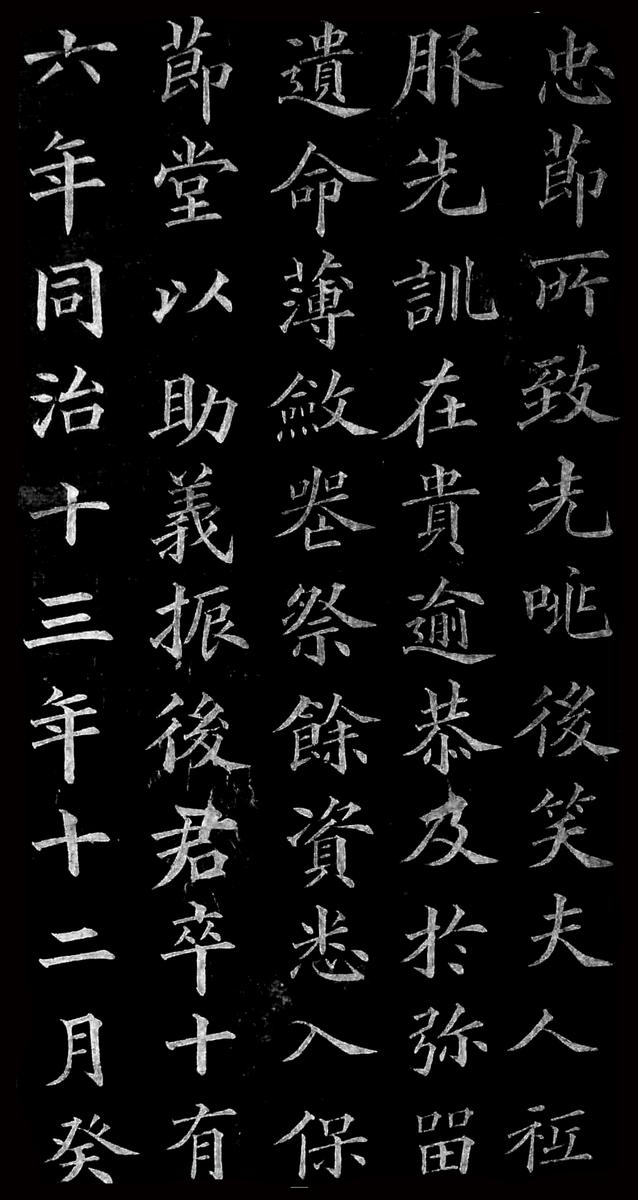 忠莭所致先咷後笑夫人祗
服先訓在貴逾恭及於弥留
遺命薄斂䘮祭餘資悉入保
莭堂以助義振後君卒十有
六年同治十三年十二月癸